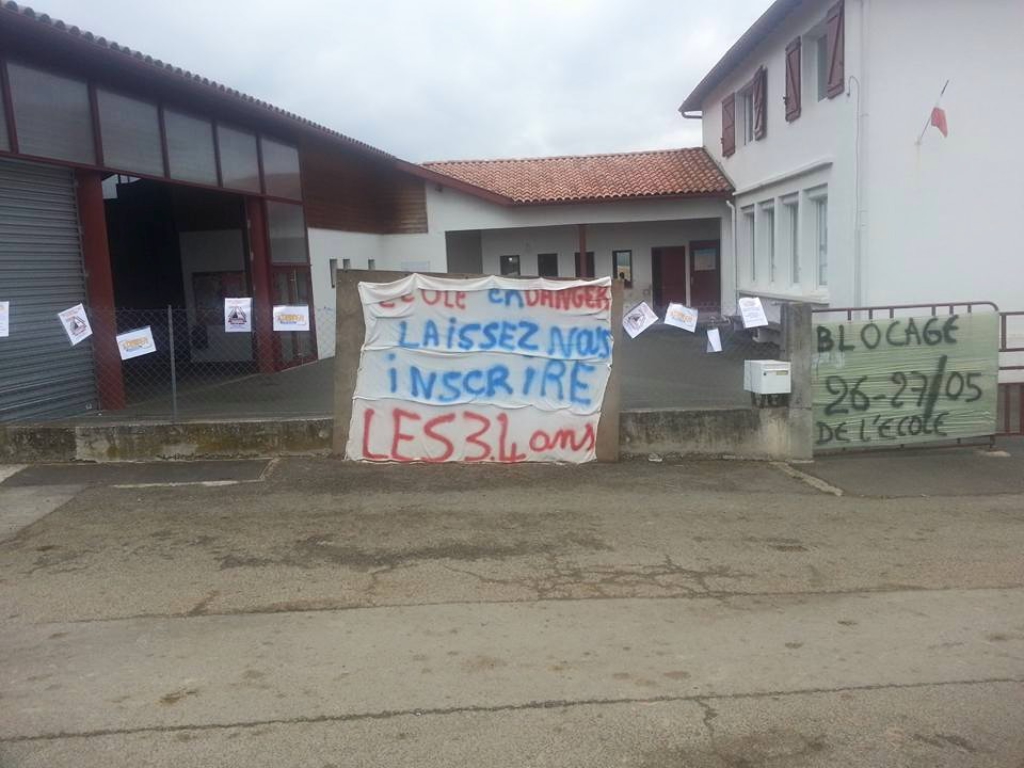 ECOLE EN DANGER
LAISSEZ NOUS
INSCRIRE
LES 3.4 ans
BLOCAGE
26-27/05
DE L'ÉCOLE